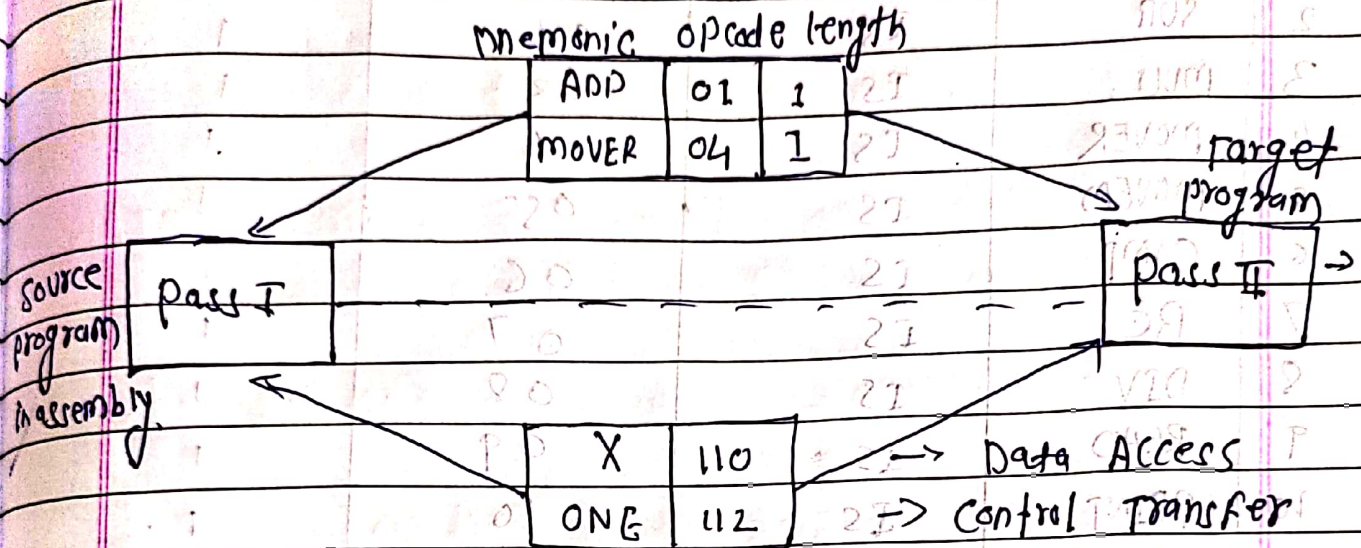 mnemonic opcode length
ADD 01 1
MOVER 04 1
Target
program
source
program
in assembly.
Pass I
Pass II →
X 110 → Data Access
ONE 112 → Control Transfer